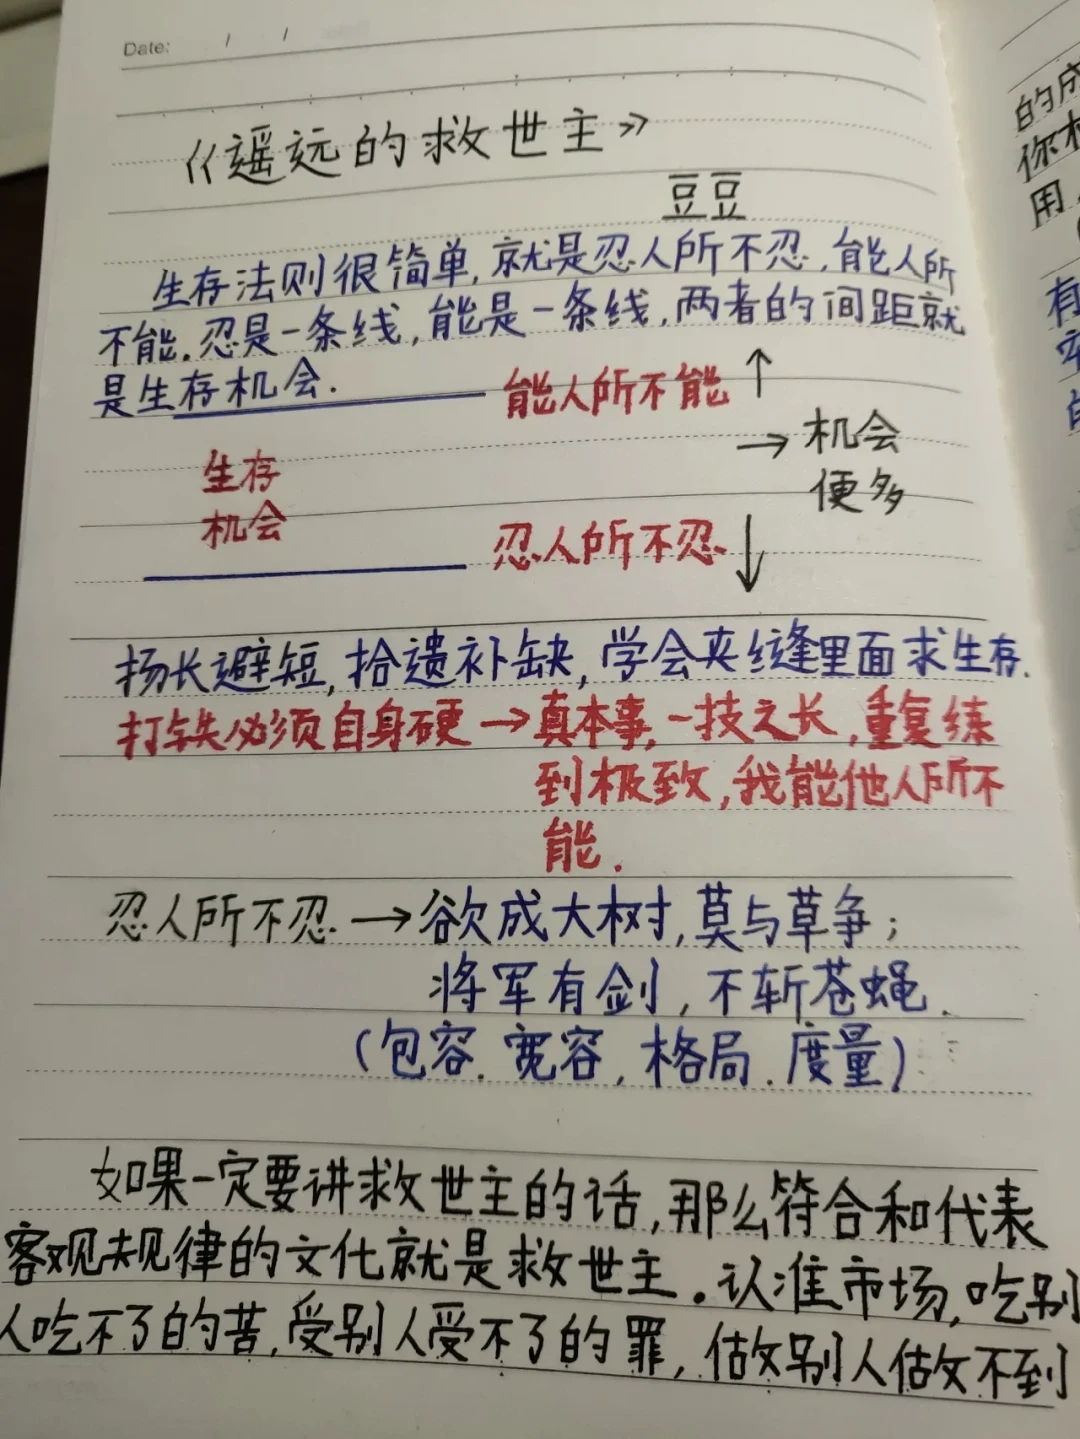 Date: / /
《遥远的救世主》
豆豆
生存法则很简单,就是忍人所不忍,能人所
不能.忍是一条线,能是一条线,两者的间距就
是生存机会.
能人所不能↑
生存
机会
→机会
便多
忍人所不忍↓
扬长避短,拾遗补缺,学会夹缝里面求生存.
打铁必须自身硬→真本事,一技之长,重复练
到极致,我能他人所不
能.
忍人所不忍→欲成大树,莫与草争;
将军有剑,不斩苍蝇.
(包容.宽容,格局.度量)
如果一定要讲救世主的话,那么符合和代表
客观规律的文化就是救世主.认准市场,吃别
人吃不了的苦,受别人受不了的罪,做别人做不到
的成
你
用
有
的